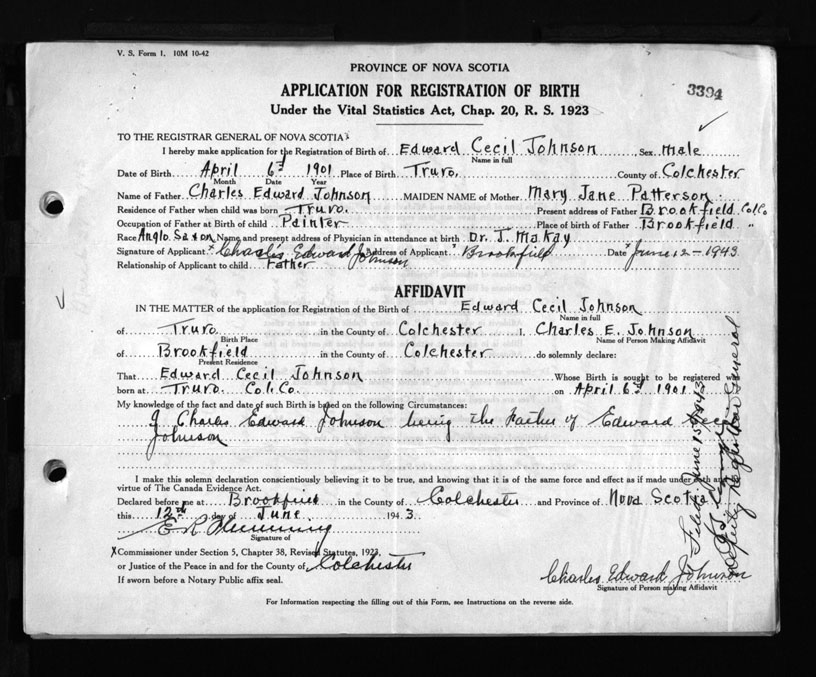 V. S. Form 1. 10M 10-42
PROVINCE OF NOVA SCOTIA
APPLICATION FOR REGISTRATION OF BIRTH
3394
Under the Vital Statistics Act, Chap. 20, R. S. 1923
TO THE REGISTRAR GENERAL OF NOVA SCOTIA
I hereby make application for the Registration of Birth of Edward Cecil Johnson Sex male
Name in full
Date of Birth April 6th 1901 Place of Birth Truro. County of Colchester
Month Date Year
Name of Father Charles Edward Johnson MAIDEN NAME of Mother Mary Jane Patterson
Residence of Father when child was born Truro. Present address of Father Brookfield Col.Co
Occupation of Father at Birth of child Painter Place of birth of Father Brookfield "
Race Anglo Saxon Name and present address of Physician in attendance at birth Dr. J. MaKay
Signature of Applicant Charles Edward Johnson Address of Applicant Brookfield Date June 12-1943
Relationship of Applicant to child Father
AFFIDAVIT
IN THE MATTER of the application for Registration of the Birth of Edward Cecil Johnson
Name in full
of Truro in the County of Colchester I, Charles E. Johnson
Birth Place Name of Person Making Affidavit
of Brookfield in the County of Colchester do solemnly declare:
Present Residence
That Edward Cecil Johnson Whose Birth is sought to be registered was
born at Truro Col. Co. on April 6th 1901
My knowledge of the fact and date of such Birth is based on the following Circumstances:
I Charles Edward Johnson being the Father of Edward Cecil
Johnson
I make this solemn declaration conscientiously believing it to be true, and knowing that it is of the same force and effect as if made under oath and
virtue of The Canada Evidence Act.
Declared before me at Brookfield in the County of Colchester and Province of Nova Scotia
this 12th day of June 1943.
Signature of
X Commissioner under Section 5, Chapter 38, Revised Statutes, 1923,
or Justice of the Peace in and for the County of Colchester
If sworn before a Notary Public affix seal.
Charles Edward Johnson
Signature of Person making Affidavit
For Information respecting the filling out of this Form, see Instructions on the reverse side.
Filed June 15/1943
Deputy Registrar General